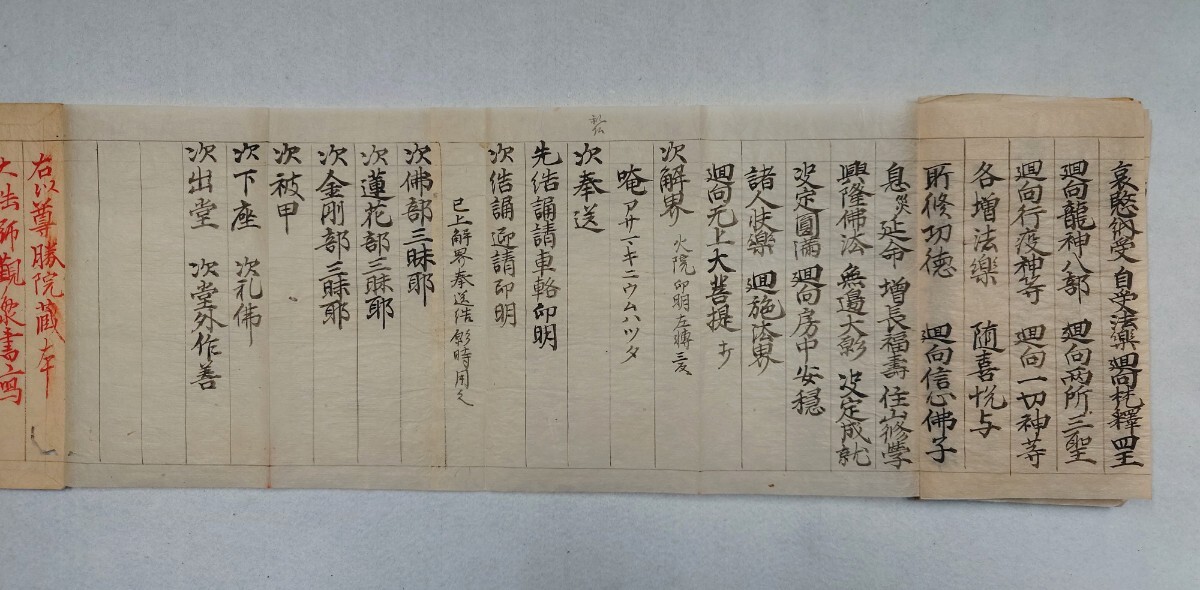 哀愍納受 自受法樂 廻向梵釋四王
廻向龍神八部 廻向兩所三聖
廻向行疫神等 廻向一切神等
各增法樂 随喜悦与
所修功徳 廻向信心佛子
息災延命 增長福壽 住山修學
興隆佛法 無邊大願 决定成就
决定圓満 廻向房中安穏
諸人快樂 廻施法界
廻向无上大菩提
次解界 火院印明左轉三反
唵アサマキニウムハツタ
次奉送
先結誦請車輅印明
次結誦迎請印明
已上解界奉送結願時用之
次佛部三昧耶
次蓮花部三昧耶
次金剛部三昧耶
次被甲
次下座 次礼佛
次出堂 次堂外作善
右以尊勝院蔵本
大法師觀衆書寫